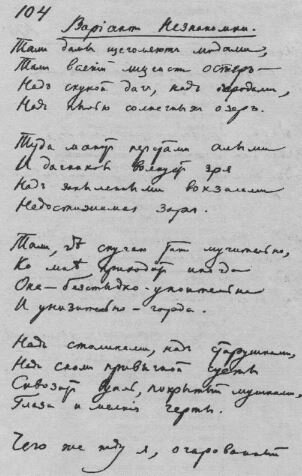 104
Варіант Незнакомки.
Там дамы щеголяют модами,
Там всякій лицеист остер —
Над скукой дач, над огородами,
Над пылью солнечных озер.
Туда манит перстами алыми
И дачников волнует зря
Над запыленными вокзалами
Недостижимая заря.
Там, где скучаю так мучительно,
Ко мне приходит иногда
Она — бесстыдно упоительна
И унизительно-горда.
Над столиками, над кружками,
Над сном привычной суеты
Сквозит вуаль, покрытый мушками,
Глаза и мелкія черты.
Чего же жду я, очарованный